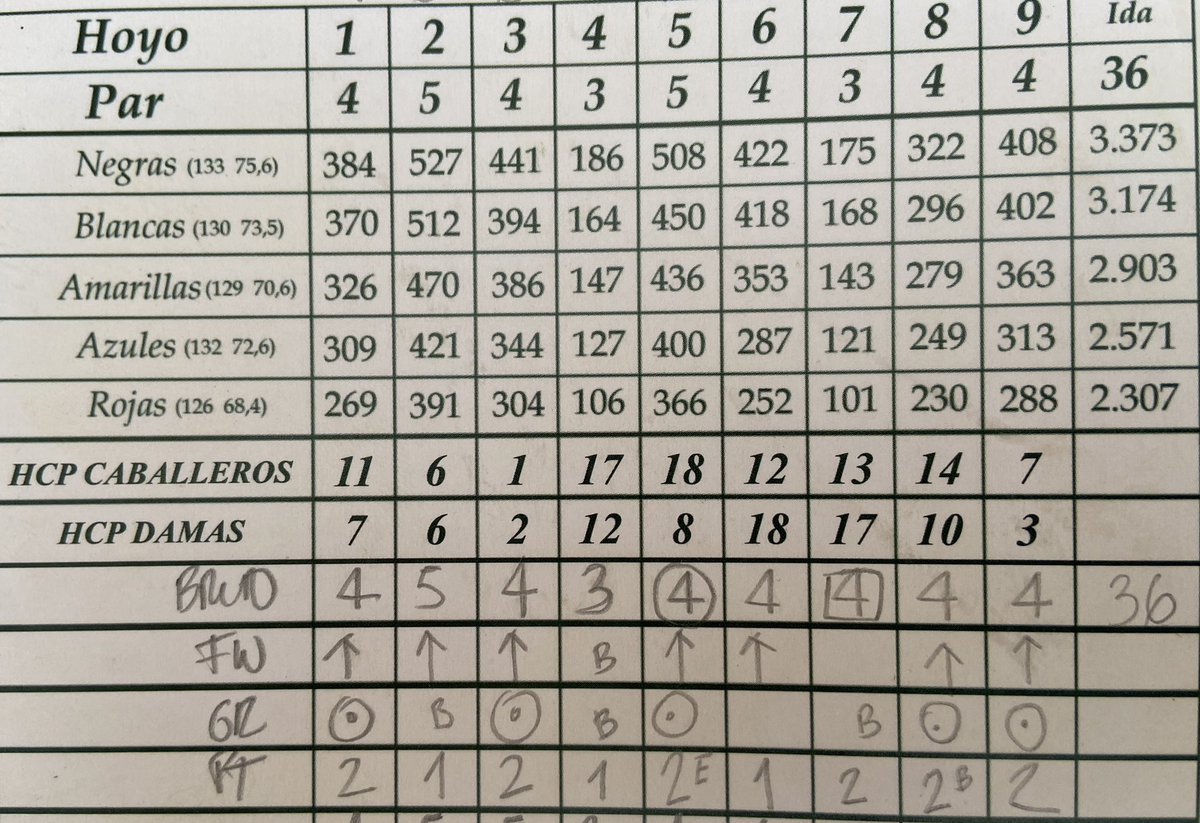 Hoyo 1 2 3 4 5 6 7 8 9 Ida
Par 4 5 4 3 5 4 3 4 4 36
Negras (133 75,6) 384 527 441 186 508 422 175 322 408 3.373
Blancas (130 73,5) 370 512 394 164 450 418 168 296 402 3.174
Amarillas (129 70,6) 326 470 386 147 436 353 143 279 363 2.903
Azules (132 72,6) 309 421 344 127 400 287 121 249 313 2.571
Rojas (126 68,4) 269 391 304 106 366 252 101 230 288 2.307
HCP CABALLEROS 11 6 1 17 18 12 13 14 7
HCP DAMAS 7 6 2 12 8 18 17 10 3
4 5 4 3 4 4 4 4 4 36
FW ↑ ↑ ↑ B ↑ ↑ ↑ ↑
GR B B B
PT 2 1 2 1 2E 1 2 2B 2